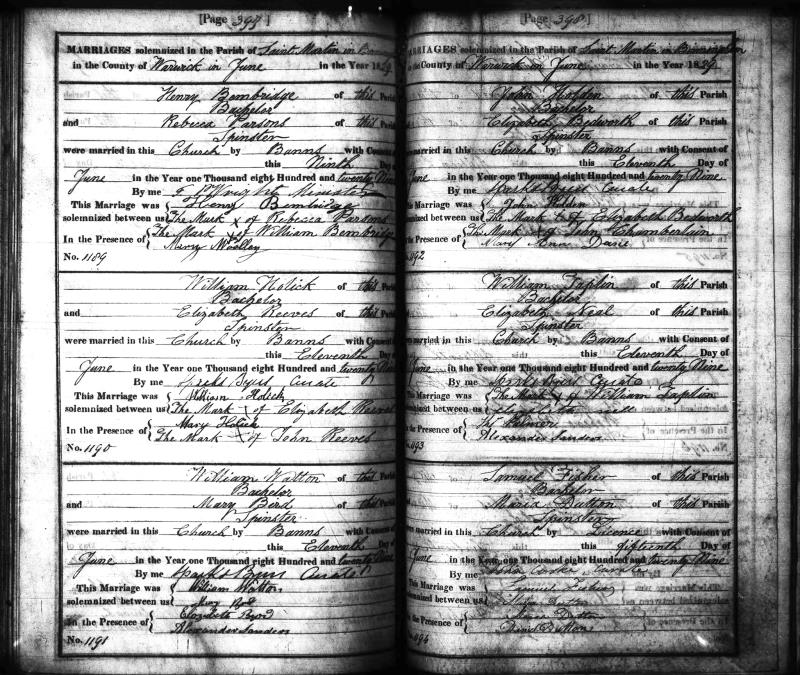 [Page 397]
MARRIAGES solemnized in the Parish of Saint Martin in
in the County of Warwick in June in the Year 1829
Henry Bembridge of this Parish
Bachelor
and Rebecca Parsons of this Parish
Spinster
were married in this Church by Banns with Consent of
this Ninth Day of
June in the Year One Thousand eight Hundred and twenty Nine
By me Minister
This Marriage was Henry Bembridge
solemnized between us The Mark x of Rebecca Parsons
In the Presence of The Mark x of William Bembridge
Mercy Woolley
No. 1189
William Holick of this Parish
Bachelor
and Elizabeth Reeves of this Parish
Spinster
were married in this Church by Banns with Consent
this Eleventh
June in the Year One Thousand eight Hundred and twenty Nine
By me Curate
This Marriage was William Holick
solemnized between us The Mark x of Elizabeth Reeves
In the Presence of Mary Holick
The Mark x of John Reeves
No. 1190
William Watton of this Parish
Bachelor
and Mary Bird of this
Spinster
were married in this Church by Banns with Consent
this Eleventh
June in the Year One Thousand eight Hundred and twenty Nine
By me Curate
This Marriage was William Watton
solemnized between us
In the Presence of Elizabeth
Alexander Sanders
No. 1191
[Page 398]
MARRIAGES solemnized in the Parish of Saint Martin in Birmingham
in the County of Warwick in June in the Year 1829
John of this Parish
Bachelor
Elizabeth Bedworth of this Parish
Spinster
married in this Church by Banns with Consent of
this Eleventh Day of
June in the Year One Thousand eight Hundred and twenty Nine
By me Curate
Marriage was John
solemnized between us The Mark x of Elizabeth Bedworth
the Presence of The Mark x of John Chamberlain
Mary Ann
1192
William Taplin of this Parish
Bachelor
Elizabeth Neal of this Parish
Spinster
married in this Church by Banns with Consent of
this Eleventh Day of
June in the Year One Thousand eight Hundred and twenty Nine
By me Curate
Marriage was The Mark x of William Taplin
solemnized between us
the Presence of Palmer
Alexander Sanders
1193
Samuel Fisher of this Parish
Bachelor
Maria Dutton of this Parish
Spinster
married in this Church by Licence with Consent of
this fifteenth Day of
June in the Year One Thousand eight Hundred and twenty Nine
By me
Marriage was Samuel Fisher
solemnized between us
the Presence of Dutton
1194